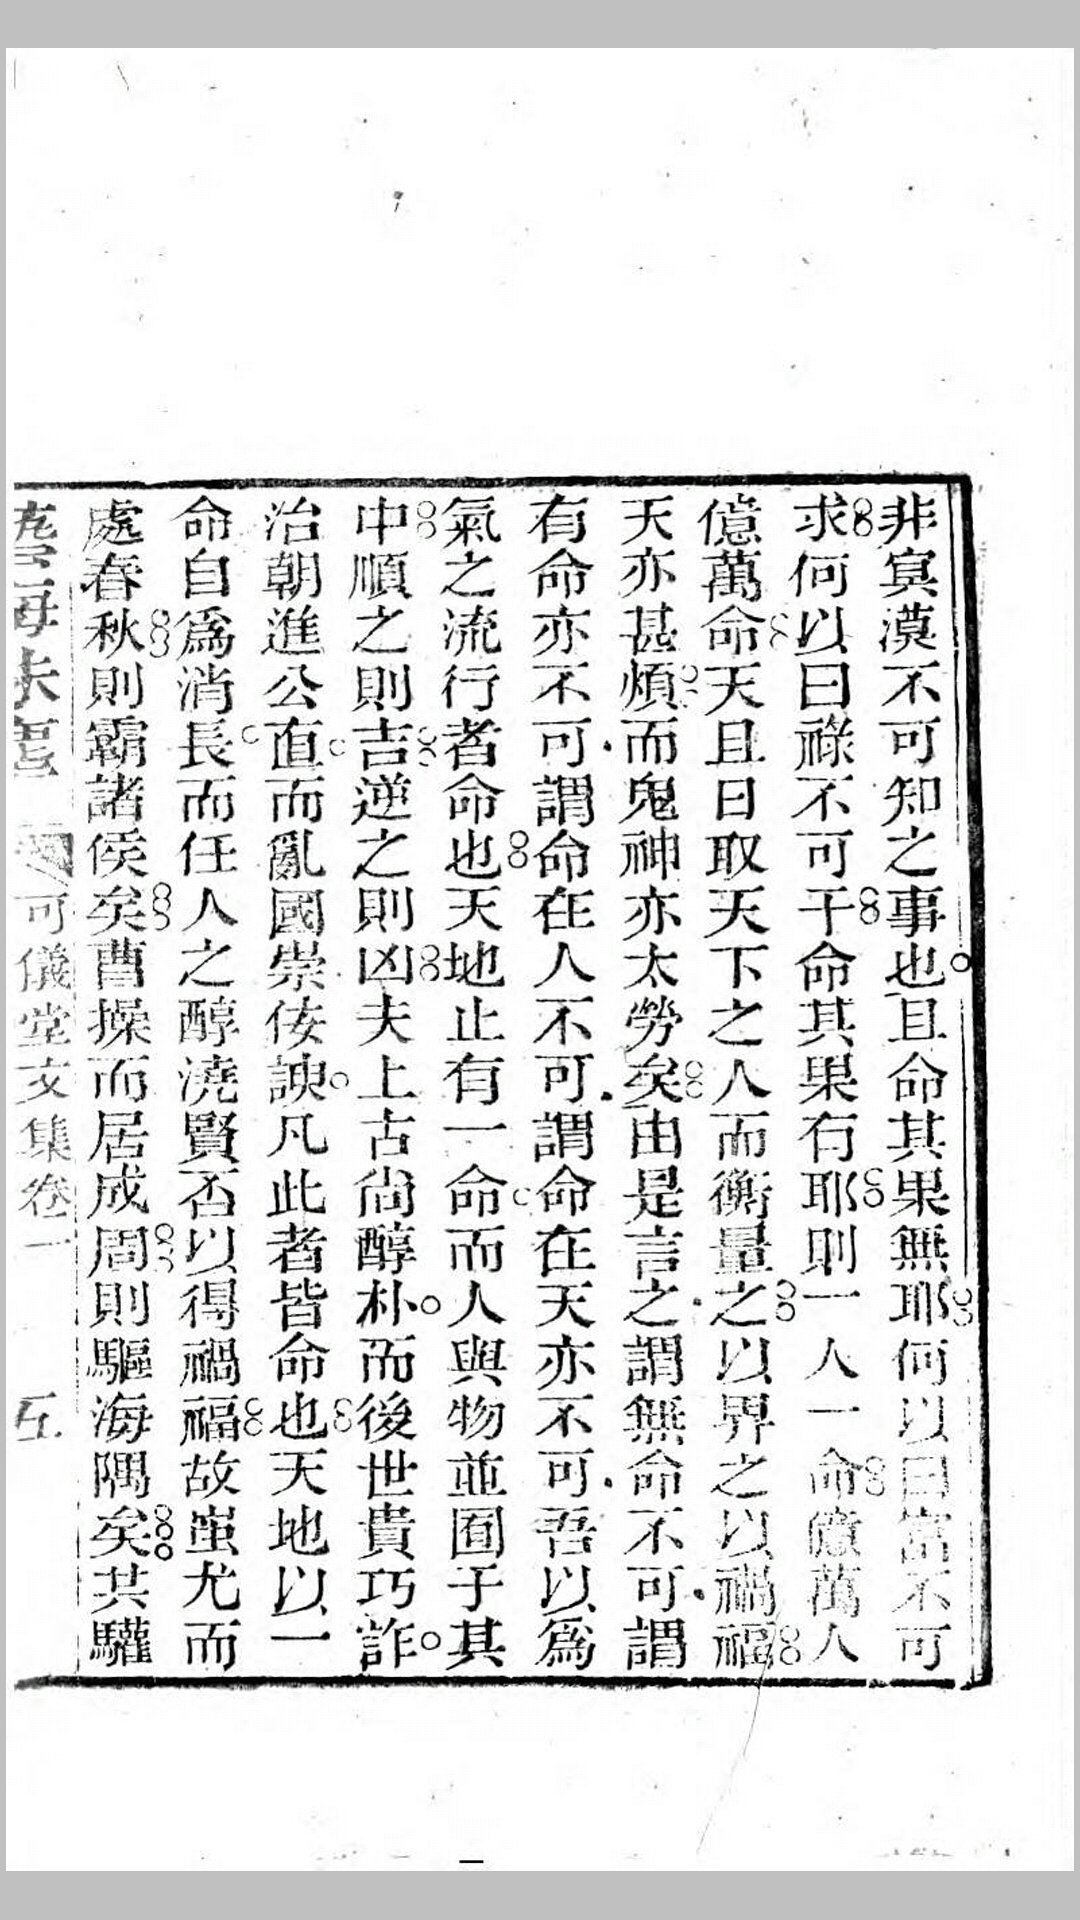 非寞漠不可知之事也且命其果無耶何以曰富不可
求何以曰祿不可干命其果有耶則一人一命億萬人
億萬命天且日取天下之人而衡量之以畀之以禍福
天亦甚煩而鬼神亦太勞矣由是言之謂無命不可謂
有命亦不可謂命在人不可謂命在天亦不可吾以爲
氣之流行者命也天地止有一命而人與物並囿于其
中順之則吉逆之則凶夫上古尙醇朴而後世貴巧詐
治朝進公直而亂國崇佞諛凡此者皆命也天地以一
命自爲消長而任人之醇澆賢否以得禍福故蚩尤而
處春秋則霸諸侯矣曹操而居成周則驅海隅矣共驩
可儀堂文集卷一 五